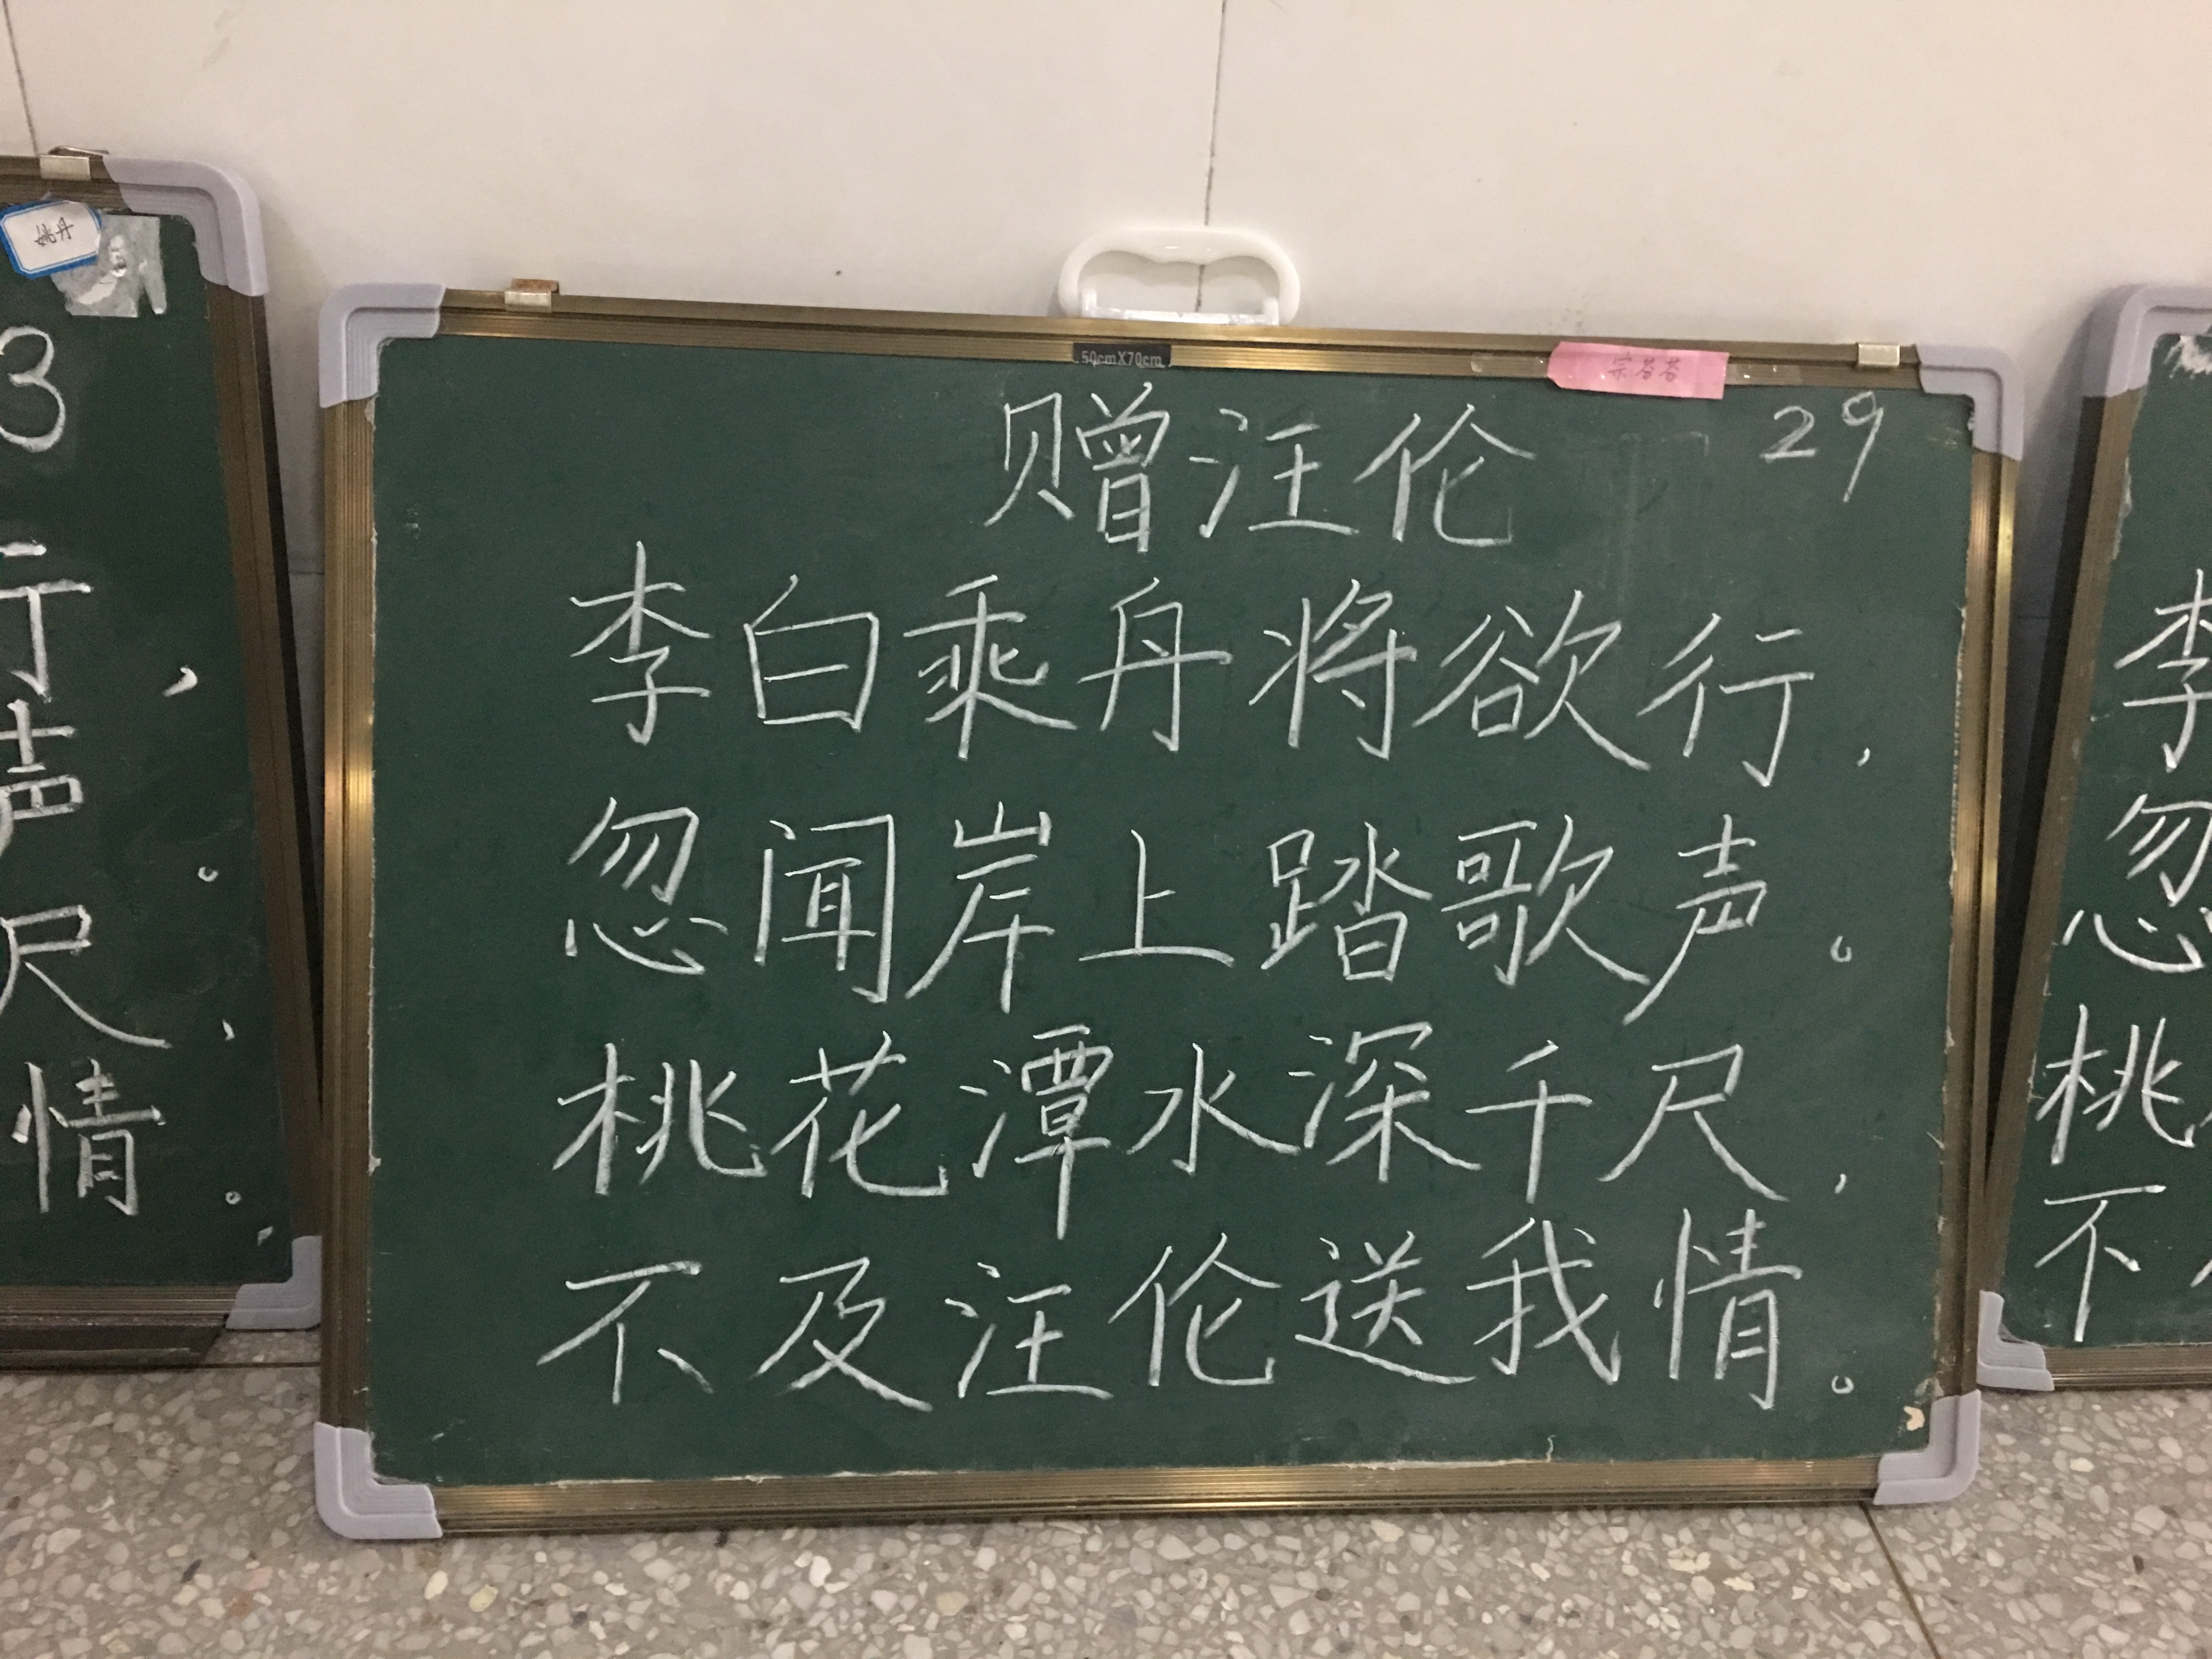 50cmX70cm
赠汪伦
29
李白乘舟将欲行，
忽闻岸上踏歌声。
桃花潭水深千尺，
不及汪伦送我情。
3
行，
声。
尺，
情。
李
忽
桃
不